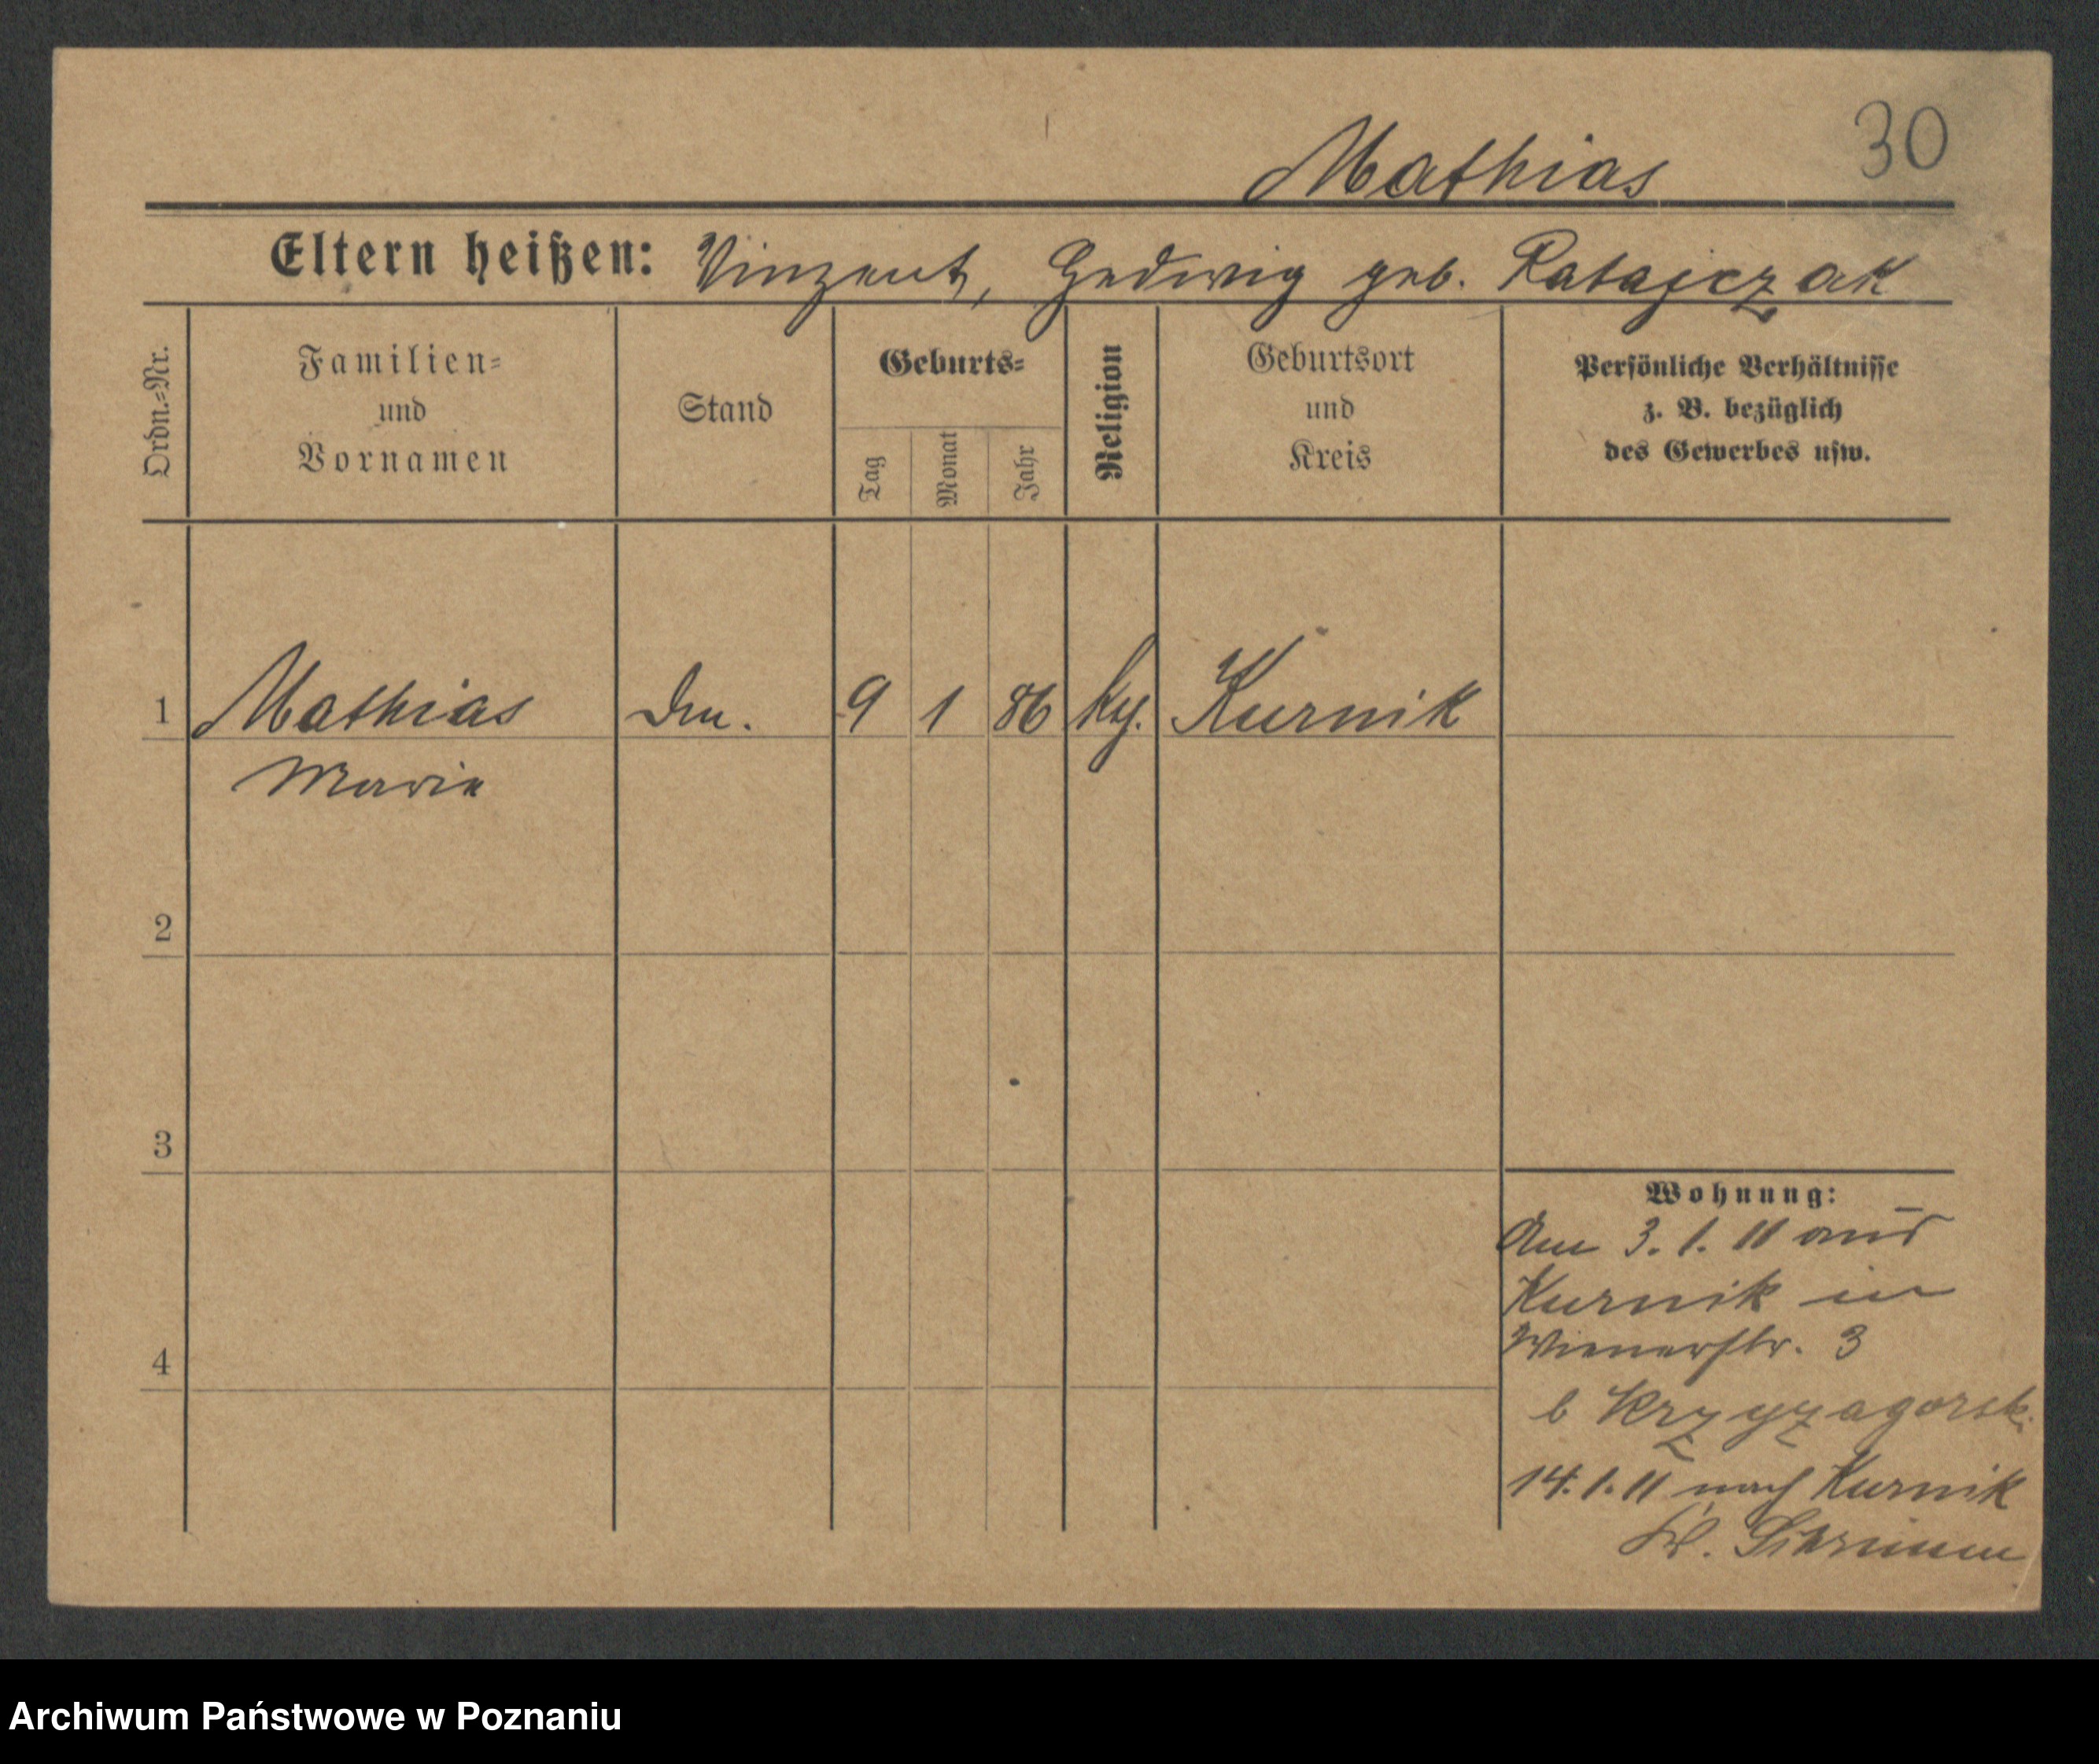 30
Mathias
Eltern heißen: Vinzent, Hedwig geb. Ratajczak
Ordn.-Nr.
Familien-
und
Vornamen
Stand
Geburts-
Tag
Monat
Jahr
Religion
Geburtsort
und
Kreis
Persönliche Verhältnisse
z. B. bezüglich
des Gewerbes usw.
1 Mathias 9 1 86 Kurnik
Marie
2
3
4
Wohnung:
Am 3. 1. 11 aus
Kurnik in
Wienerstr. 3
b Krzyzagorsk.
14. 1. 11 nach Kurnik
Schrimm
Archiwum Państwowe w Poznaniu